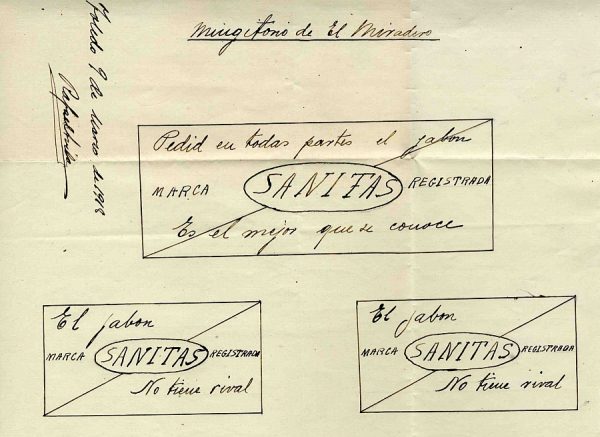 Mingitorio de El Miradero
Toledo 9 de Marzo de 1918
Pedid en todas partes el jabon
MARCA SANITAS REGISTRADA
Es el mejor que se conoce
El jabon
MARCA SANITAS REGISTRADA
No tiene rival
El jabon
MARCA SANITAS REGISTRADA
No tiene rival